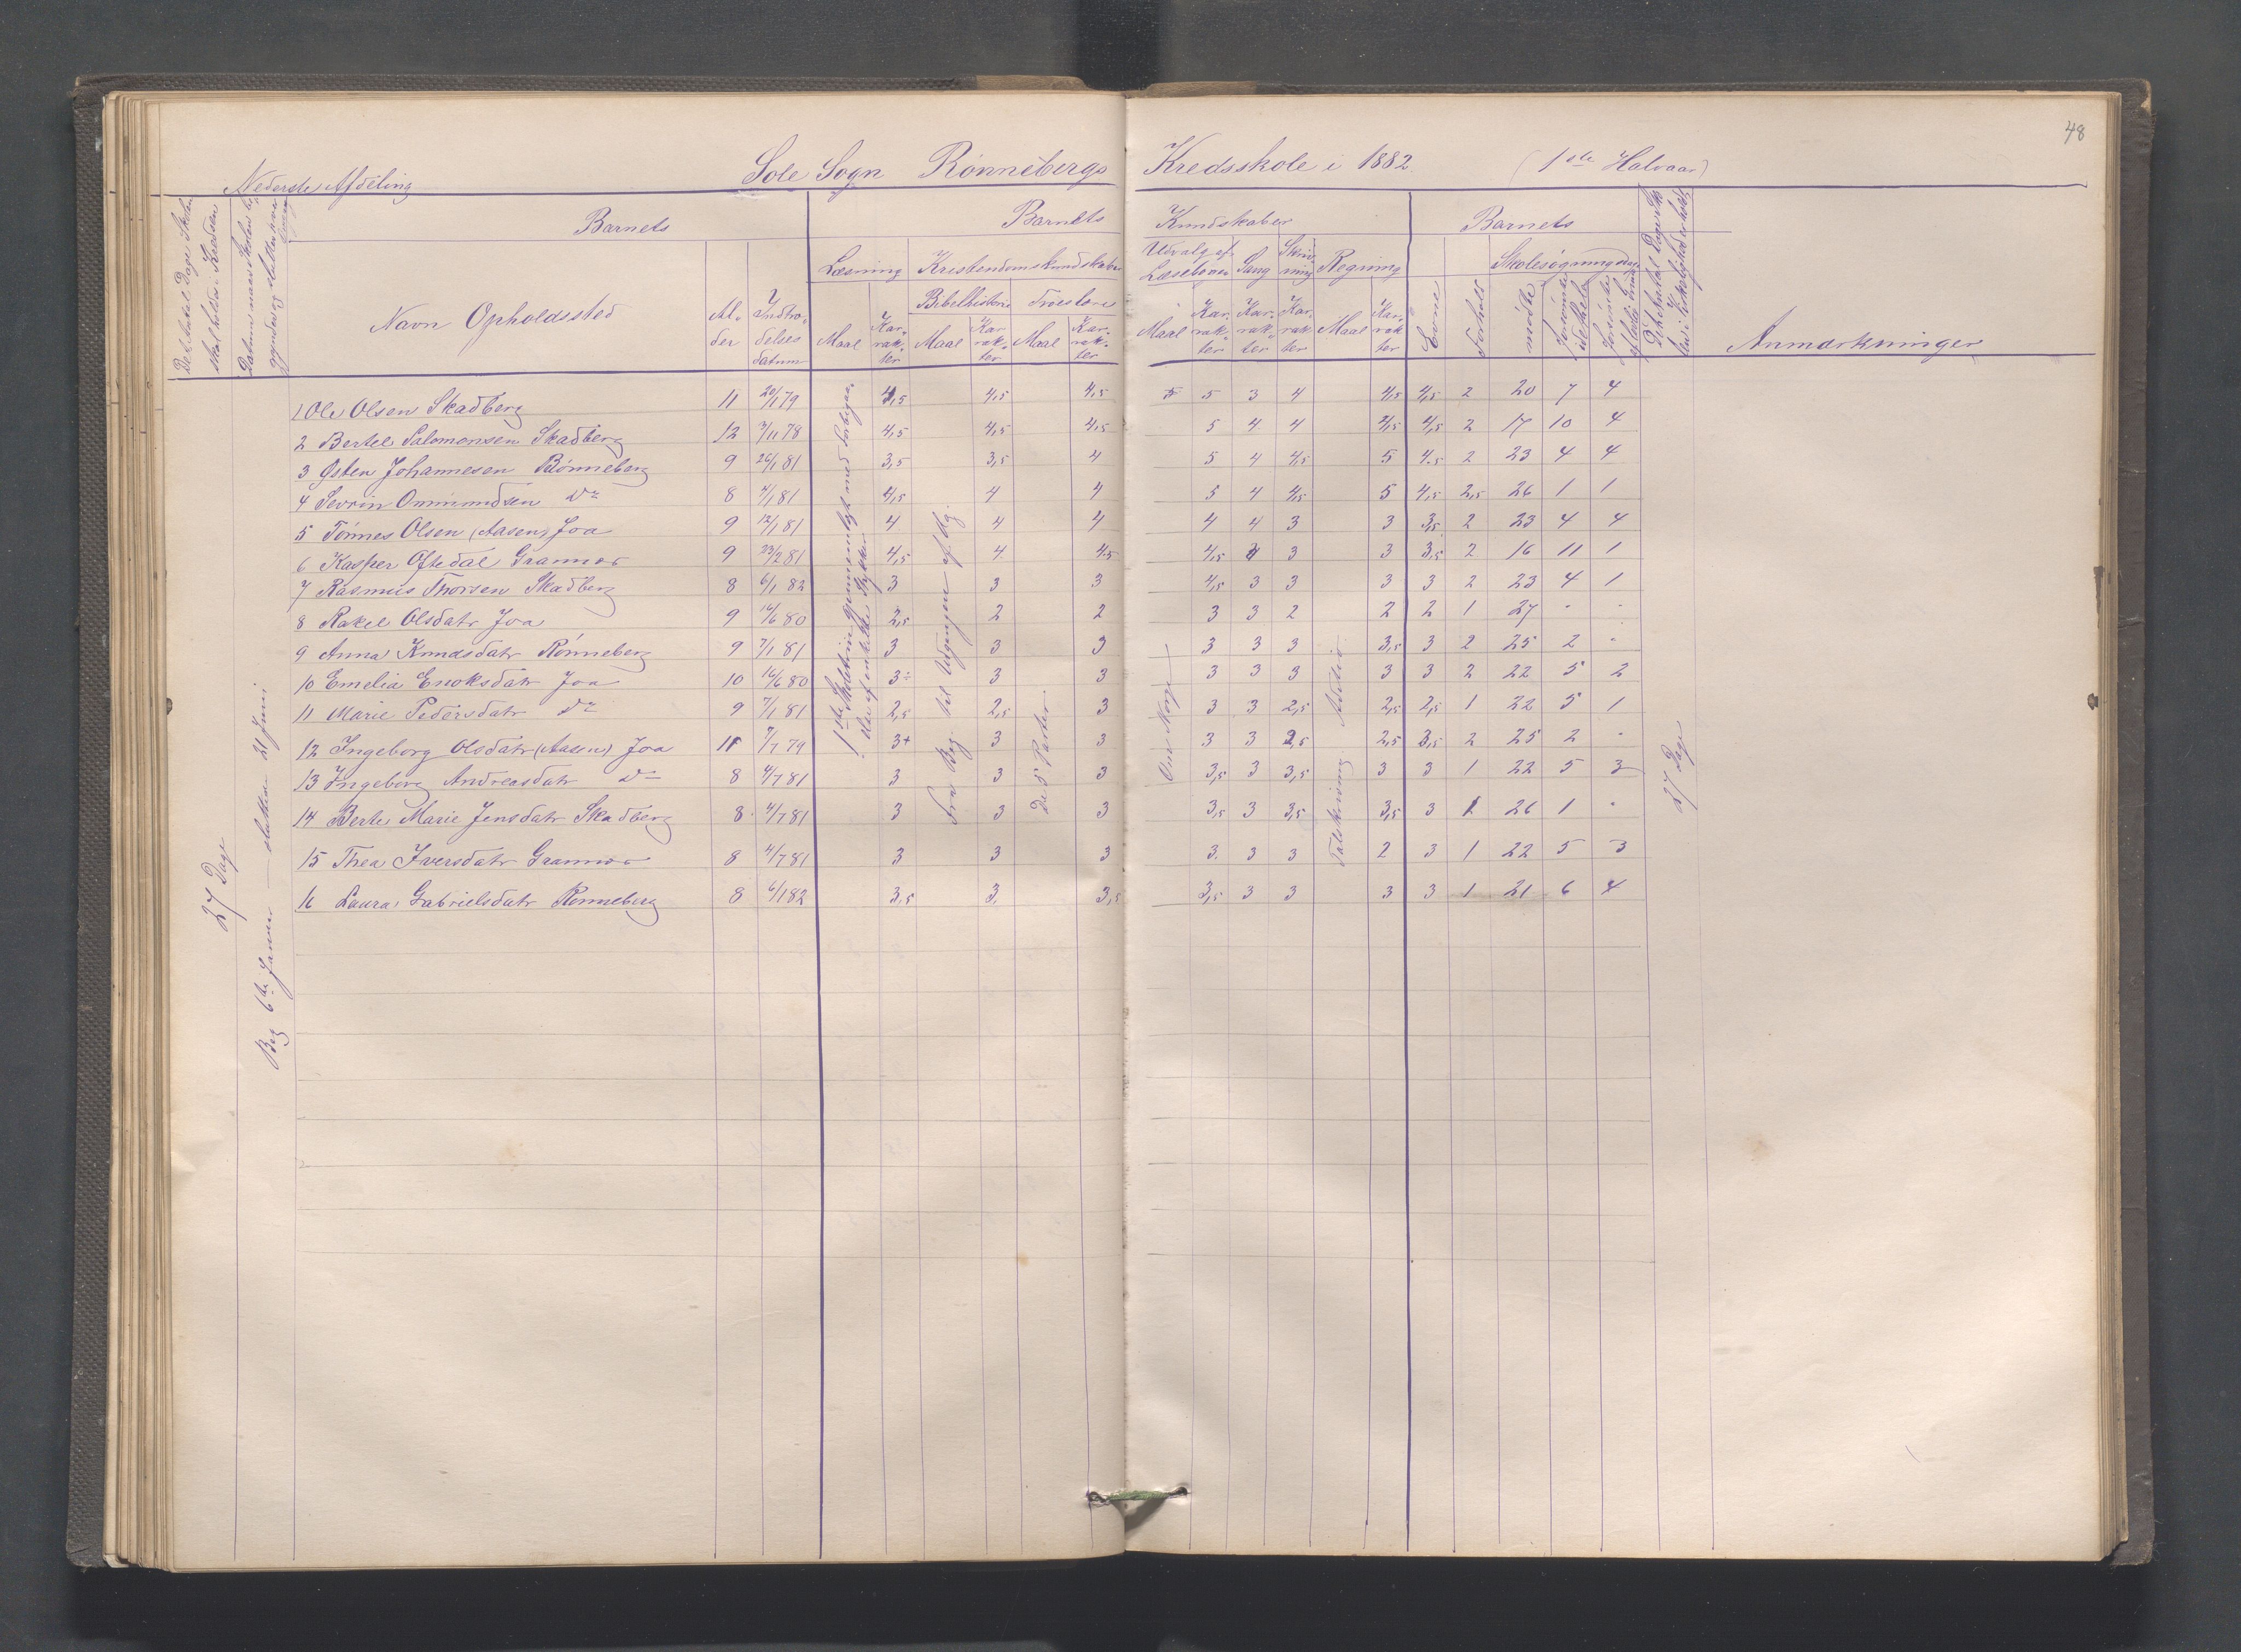 48
Nederste Afdeling Sole Sogn Rønnebergs Kredsskole i 1882 (1ste Halvaar)
Det Antal Dage Skolen skal holdes i Kredsen
Datum naar Skolen begyndes og slutter hver Omgang
Barnets
Barnets Kundskaber
Barnets
Læsning Kristendomskundskaber
Udvalg af Læsebogen Sang Skrivning Regning
Skolesøgning Dage
Bibelhistorie Troeslære
Navn Opholdssted
Alder
Indtrædelses datum
Maal Karrakter Maal Karrakter Maal Karrakter
Maal Karrakter Karrakter Karrakter Maal Karrakter
Evne Forhold mødte forsømte i det hele
Det Antal Dage Skolen i Virkelighed er holdt
Anmærkninger
1 Ole Olsen Skadberg 11 20/1 79 4,5 4,5 4,5 5 3 4 4,5 4,5 2 20 7 4
2 Bertel Salomonsen Skadberg 12 /11 78 4,5 4,5 4,5 5 4 4 4,5 4,5 2 17 10 4
3 Østen Johannesen Rønneberg 9 26/1 81 3,5 3,5 4 5 4 4,5 5 4.5 2 23 4 4
4 Sevrin Ommundsen Do 8 4/1 81 4,5 4 4 5 4 4,5 5 4,5 2,5 26 1 1
5 Tønnes Olsen (Aasen) Joa 9 12/1 81 4 4 4 4 4 3 3 3,5 2 23 4 4
6 Kasper Oftedal Grannes 9 23/2 81 4,5 4 4.5 4,5 4 3 3 3,5 2 16 11 1
7 Rasmus Thorsen Skadberg 8 6/1 82 3 3 3 4,5 3 3 3 3 2 23 4 1
8 Rakel Olsdatr Joa 9 16/6 80 2,5 2 2 3 3 2 2 2 1 27 - -
9 Anna Knudsdatr Rønneberg 9 7/1 81 3 3 3 3 3 3 3,5 3 2 25 2 -
10 Emelia Enoksdatr Joa 10 16/6 80 3÷ 3 3 3 3 3 3 3 2 22 5 2
11 Marie Pedersdatr Do 9 7/1 81 2,5 2,5 3 3 3 2,5 2,5 2,5 1 22 5 1
12 Ingeborg Olsdatr (Aasen) Joa 11 7/7 79 3+ 3 3 3 3 2,5 2,5 3,5 2 25 2 -
13 Ingeborg Andreasdatr Do 8 4/7 81 3 3 3 3,5 3 3,5 3 3 1 22 5 3
14 Berte Marie Jensdatr Skadberg 8 4/7 81 3 3 3 3,5 3 3,5 3,5 3 1 26 1 -
15 Thea Iversdatr Grannes 8 4/7 81 3 3 3 3. 3 3 2 3 1 22 5 3
16 Laura Gabrielsdatr Rønneberg 8 6/1 82 3,5 3. 3,5 3,5 3 3 3 3 1 21 6 4
27 Dage
Beg 6te Januar — sluttken 21 Juni
1ste Skoletrin gjennemlagt med Forbigaaelse af enkelte Stykker
Fra Beg. til Udgangen af Æg.
De 5 Parter
Om Norge
Talskrivning Adition
27 Dage